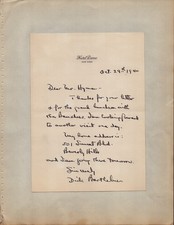 Hotel Pierre
New York
Oct. 29th
Dear Mr. Hyman
Thanks for your letter
& for the grand luncheon with
the Barahal. I am looking forward
to another visit one day.
My home address is:
501 Sunset Blvd.
Beverly Hills
and I am going there tomorrow.
Sincerely
Dick Barthelmess